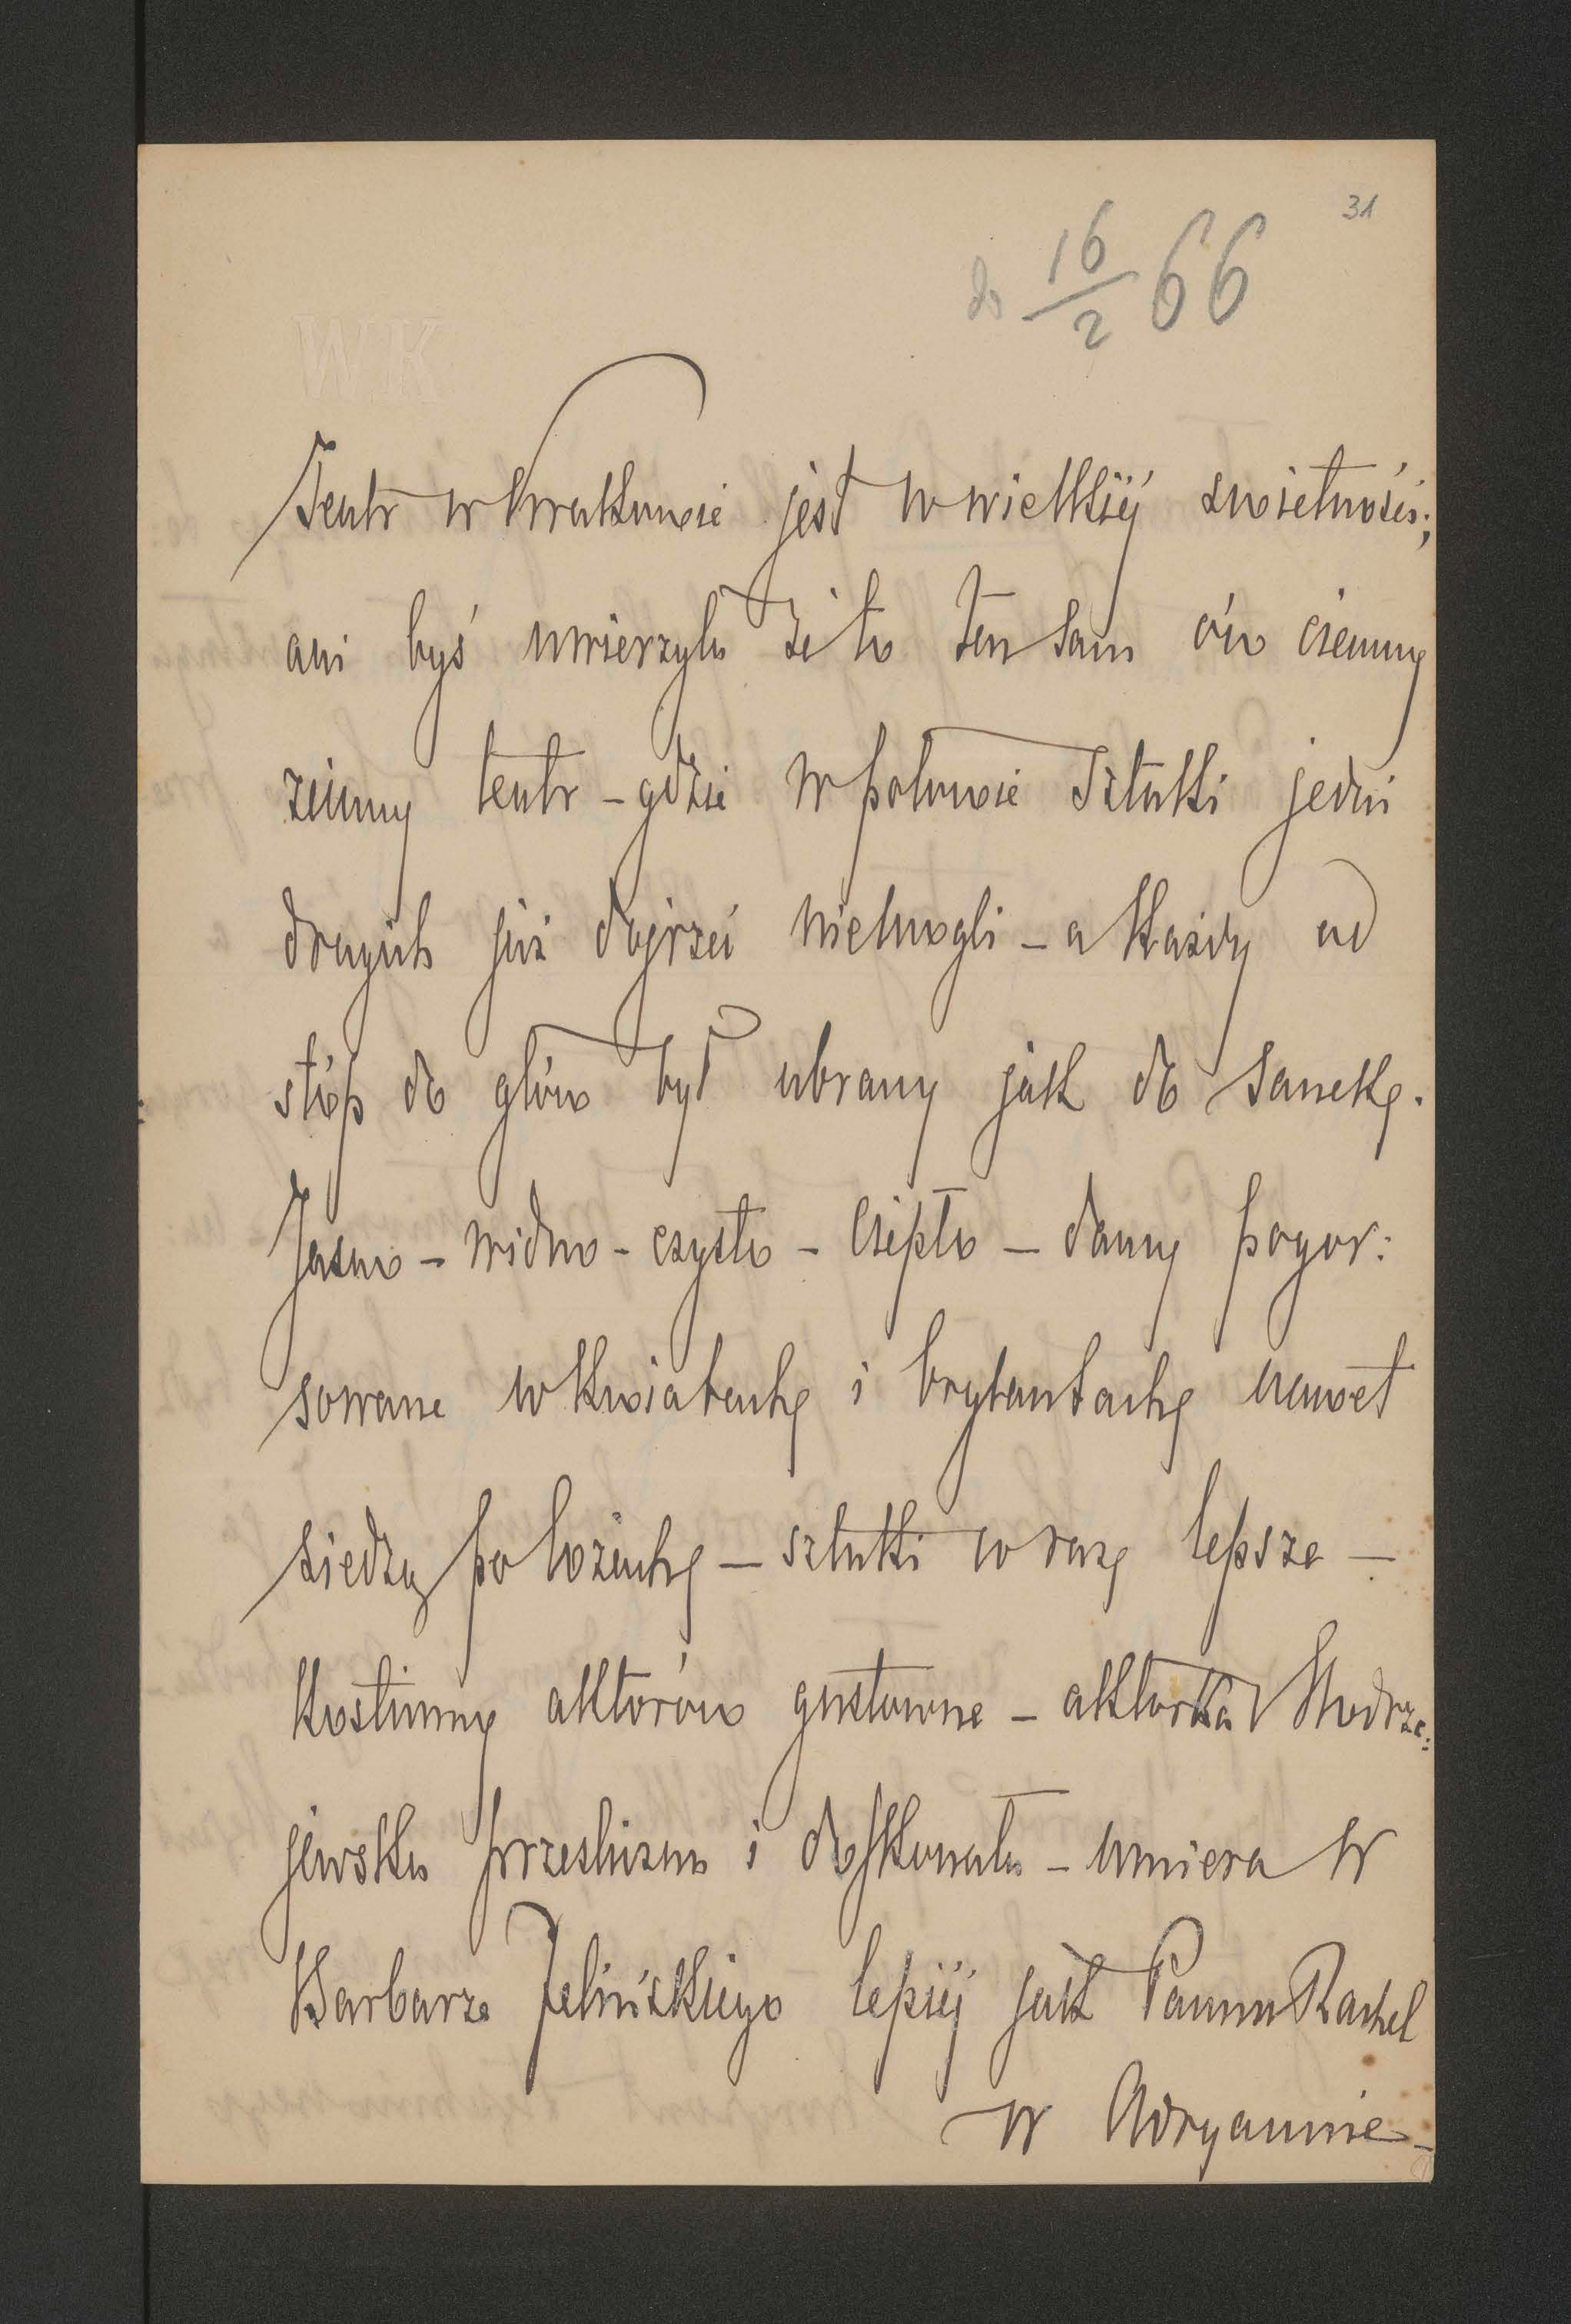 31
do 16/2 66
W.K
Teatr w Krakowie jest w wielkiej swietności;
ani byś uwierzyła że to ten sam ów ciemny
zimny teatr - gdzie w połowie sztuki jedni
drugich już dojrzeć niemogli - a każdy od
stóp do głów był ubrany jak do sanek.
Jasno - widno - czysto - ciepło - damy pogor:
sowane w kwiatach i brylantach nawet
siedzą po lożach - sztuki coraz lepsze -
kostiumy aktorów gustowne - aktorka Modrze:
jewska prześliczna i doskonała - umiera w
Barbarze Felińskiego lepiej jak Panna Rachel
w Adryannie -